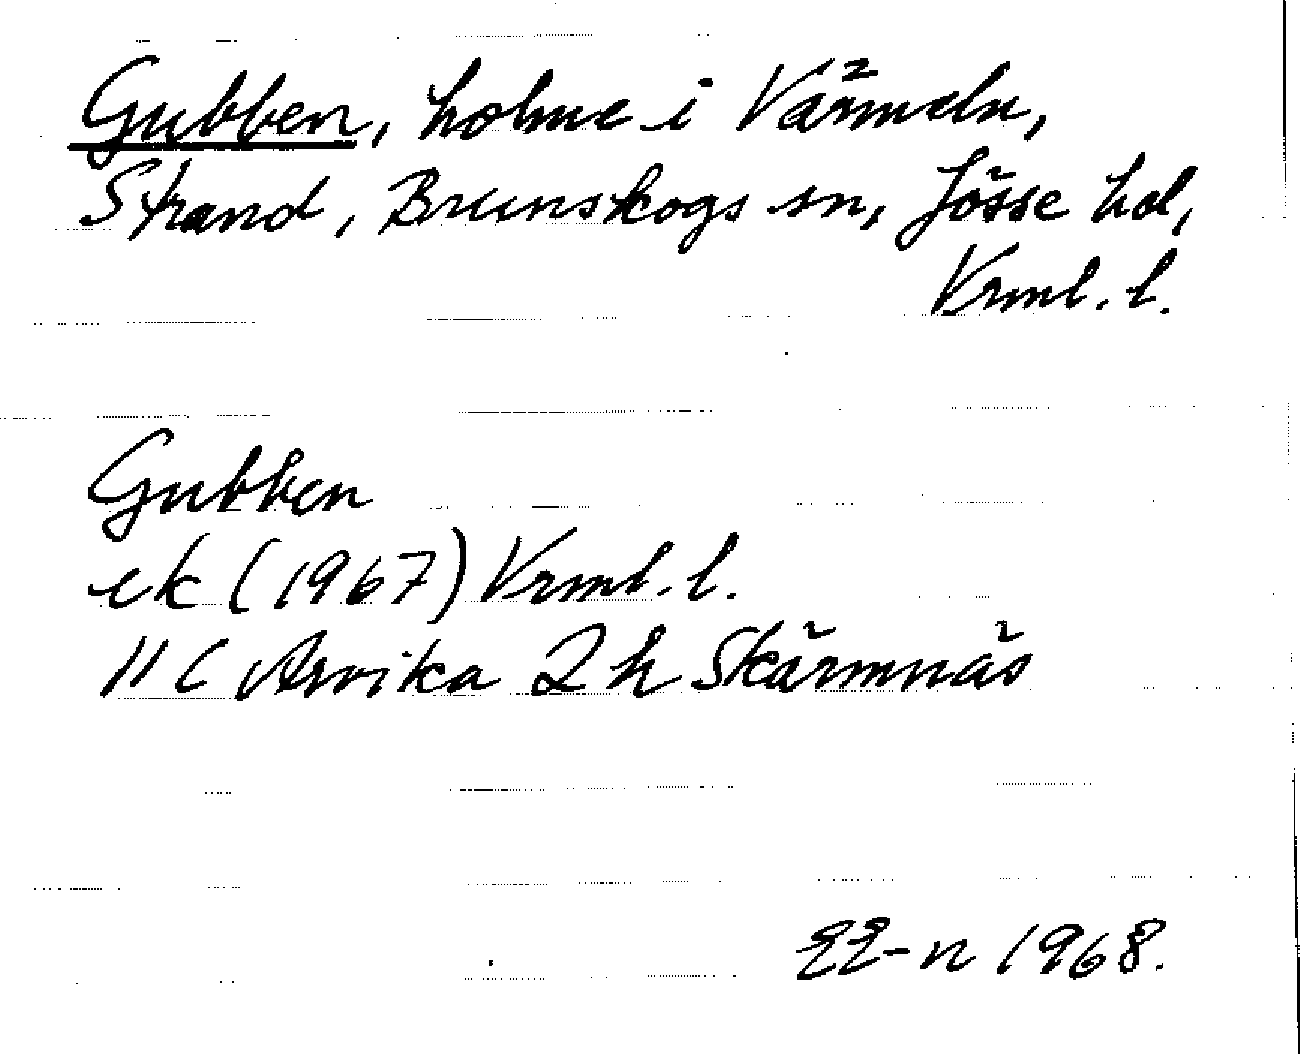 Gubben, holme i Värmeln,
Strand, Brunskogs sn, Jösse hd,
Vrml. l.
Gubben
ek (1967) Vrml. l.
11 C Arvika 2 h Skärmnäs
EE-n 1968.